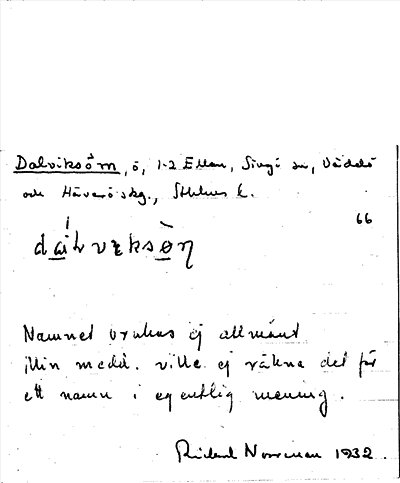 Dalviksön, ö, 1-2 Ellan, Singö sn, Väddö
och Häverö skg., Sthlms l.
66
dálvɪksòn
Namnet brukas ej allmänt
Min medd. ville ej räkna det för
ett namn i egentlig mening.
Rickard Norrman 1932.